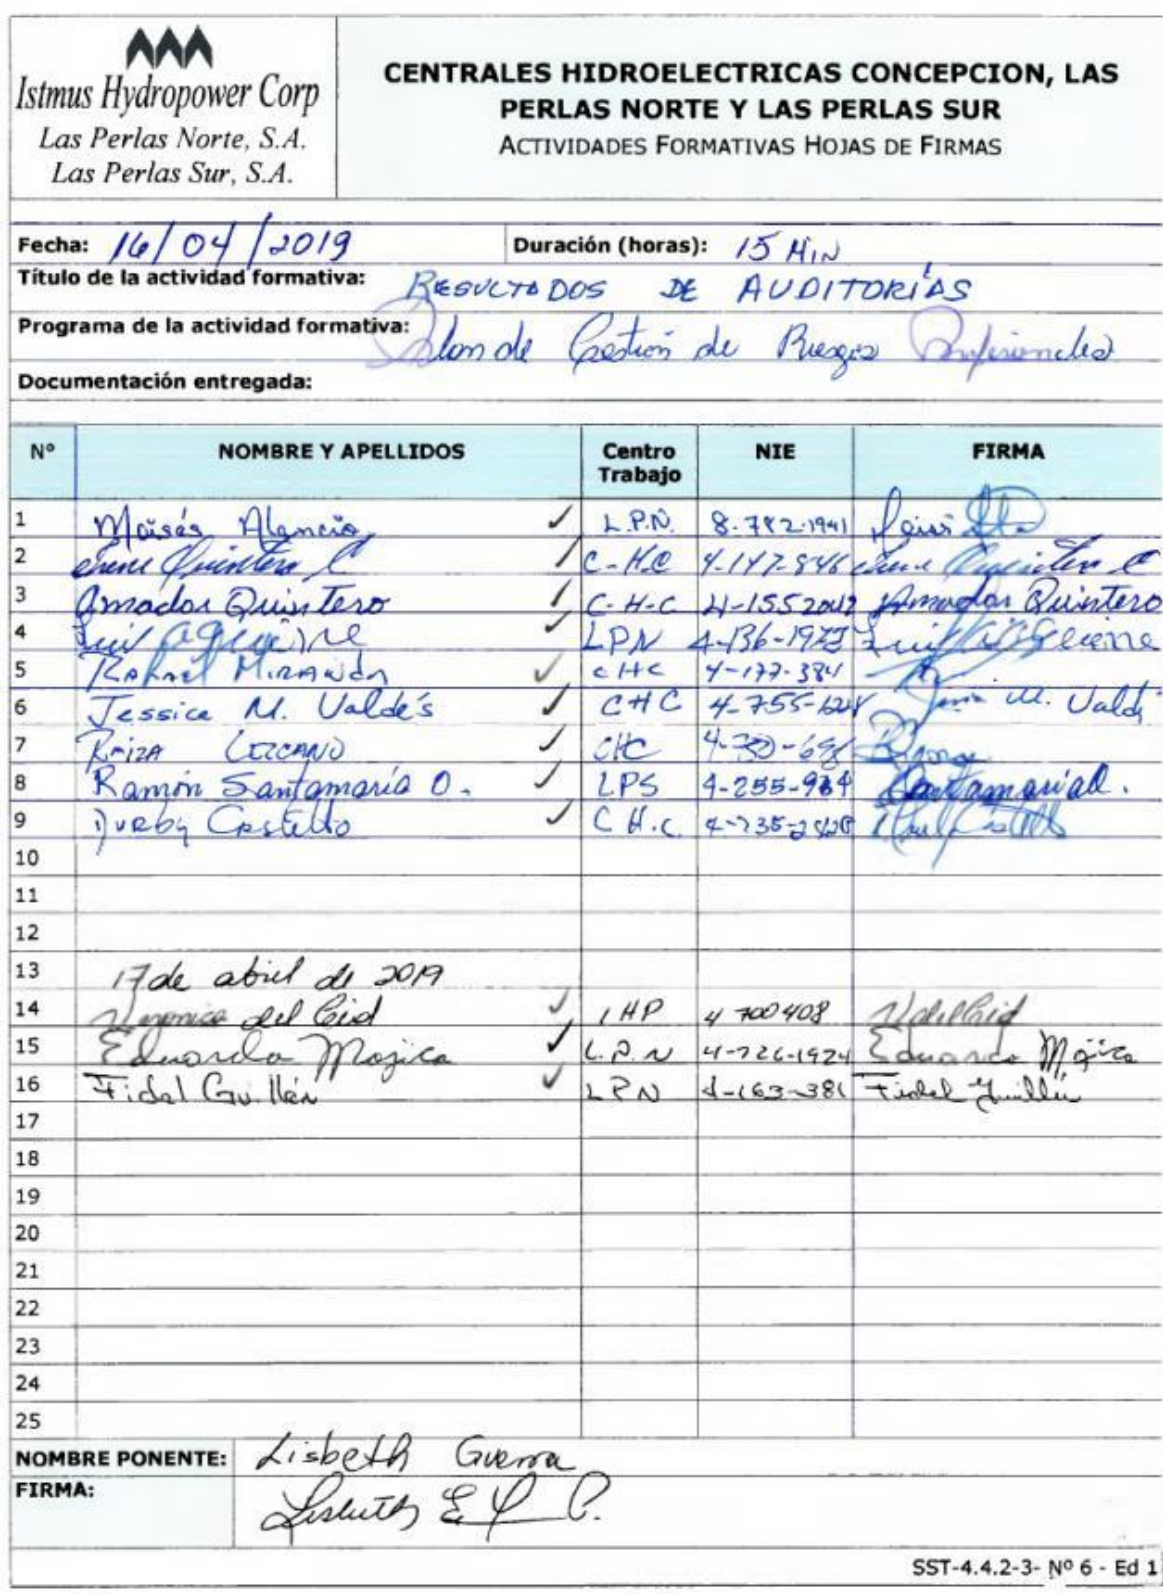 Istmus Hydropower Corp
Las Perlas Norte, S.A.
Las Perlas Sur, S.A.
CENTRALES HIDROELECTRICAS CONCEPCION, LAS
PERLAS NORTE Y LAS PERLAS SUR
ACTIVIDADES FORMATIVAS HOJAS DE FIRMAS
Fecha: 16/04/2019 Duración (horas): 15 MIN
Título de la actividad formativa: RESULTADOS DE AUDITORÍAS
Programa de la actividad formativa: Plan de Gestión de Riesgos Profesionales
Documentación entregada:
Nº NOMBRE Y APELLIDOS Centro Trabajo NIE FIRMA
1 Moisés L.P.N. 8-782-1941
2 Quintero C C-H.C 4-147-846 Quintero C
3 Amador Quintero C-H-C 4-155 2042 Amador Quintero
4 Luis Aguirre LPN 4-136-1973 Luis
5 Rafael MIRANDA CHC 4-177-384
6 Jessica M. Valdés CHC 4-755- M. Valdés
7 CHC
8 Ramón Santamaría O. LPS 4-255- Santamaría O.
9 Castillo C H.C. 4-735-
10
11
12
13 17 de abril de 2019
14 Veronica del Cid IHP 4 700408 V del Cid
15 Eduardo Mojica L.P.N 4-726-1924 Eduardo Mojica
16 Fidel Guillén LPN 4-163-381 Fidel Guillén
17
18
19
20
21
22
23
24
25
NOMBRE PONENTE: Lisbeth Guerra
FIRMA: Lisbeth E
SST-4.4.2-3- Nº 6 - Ed 1